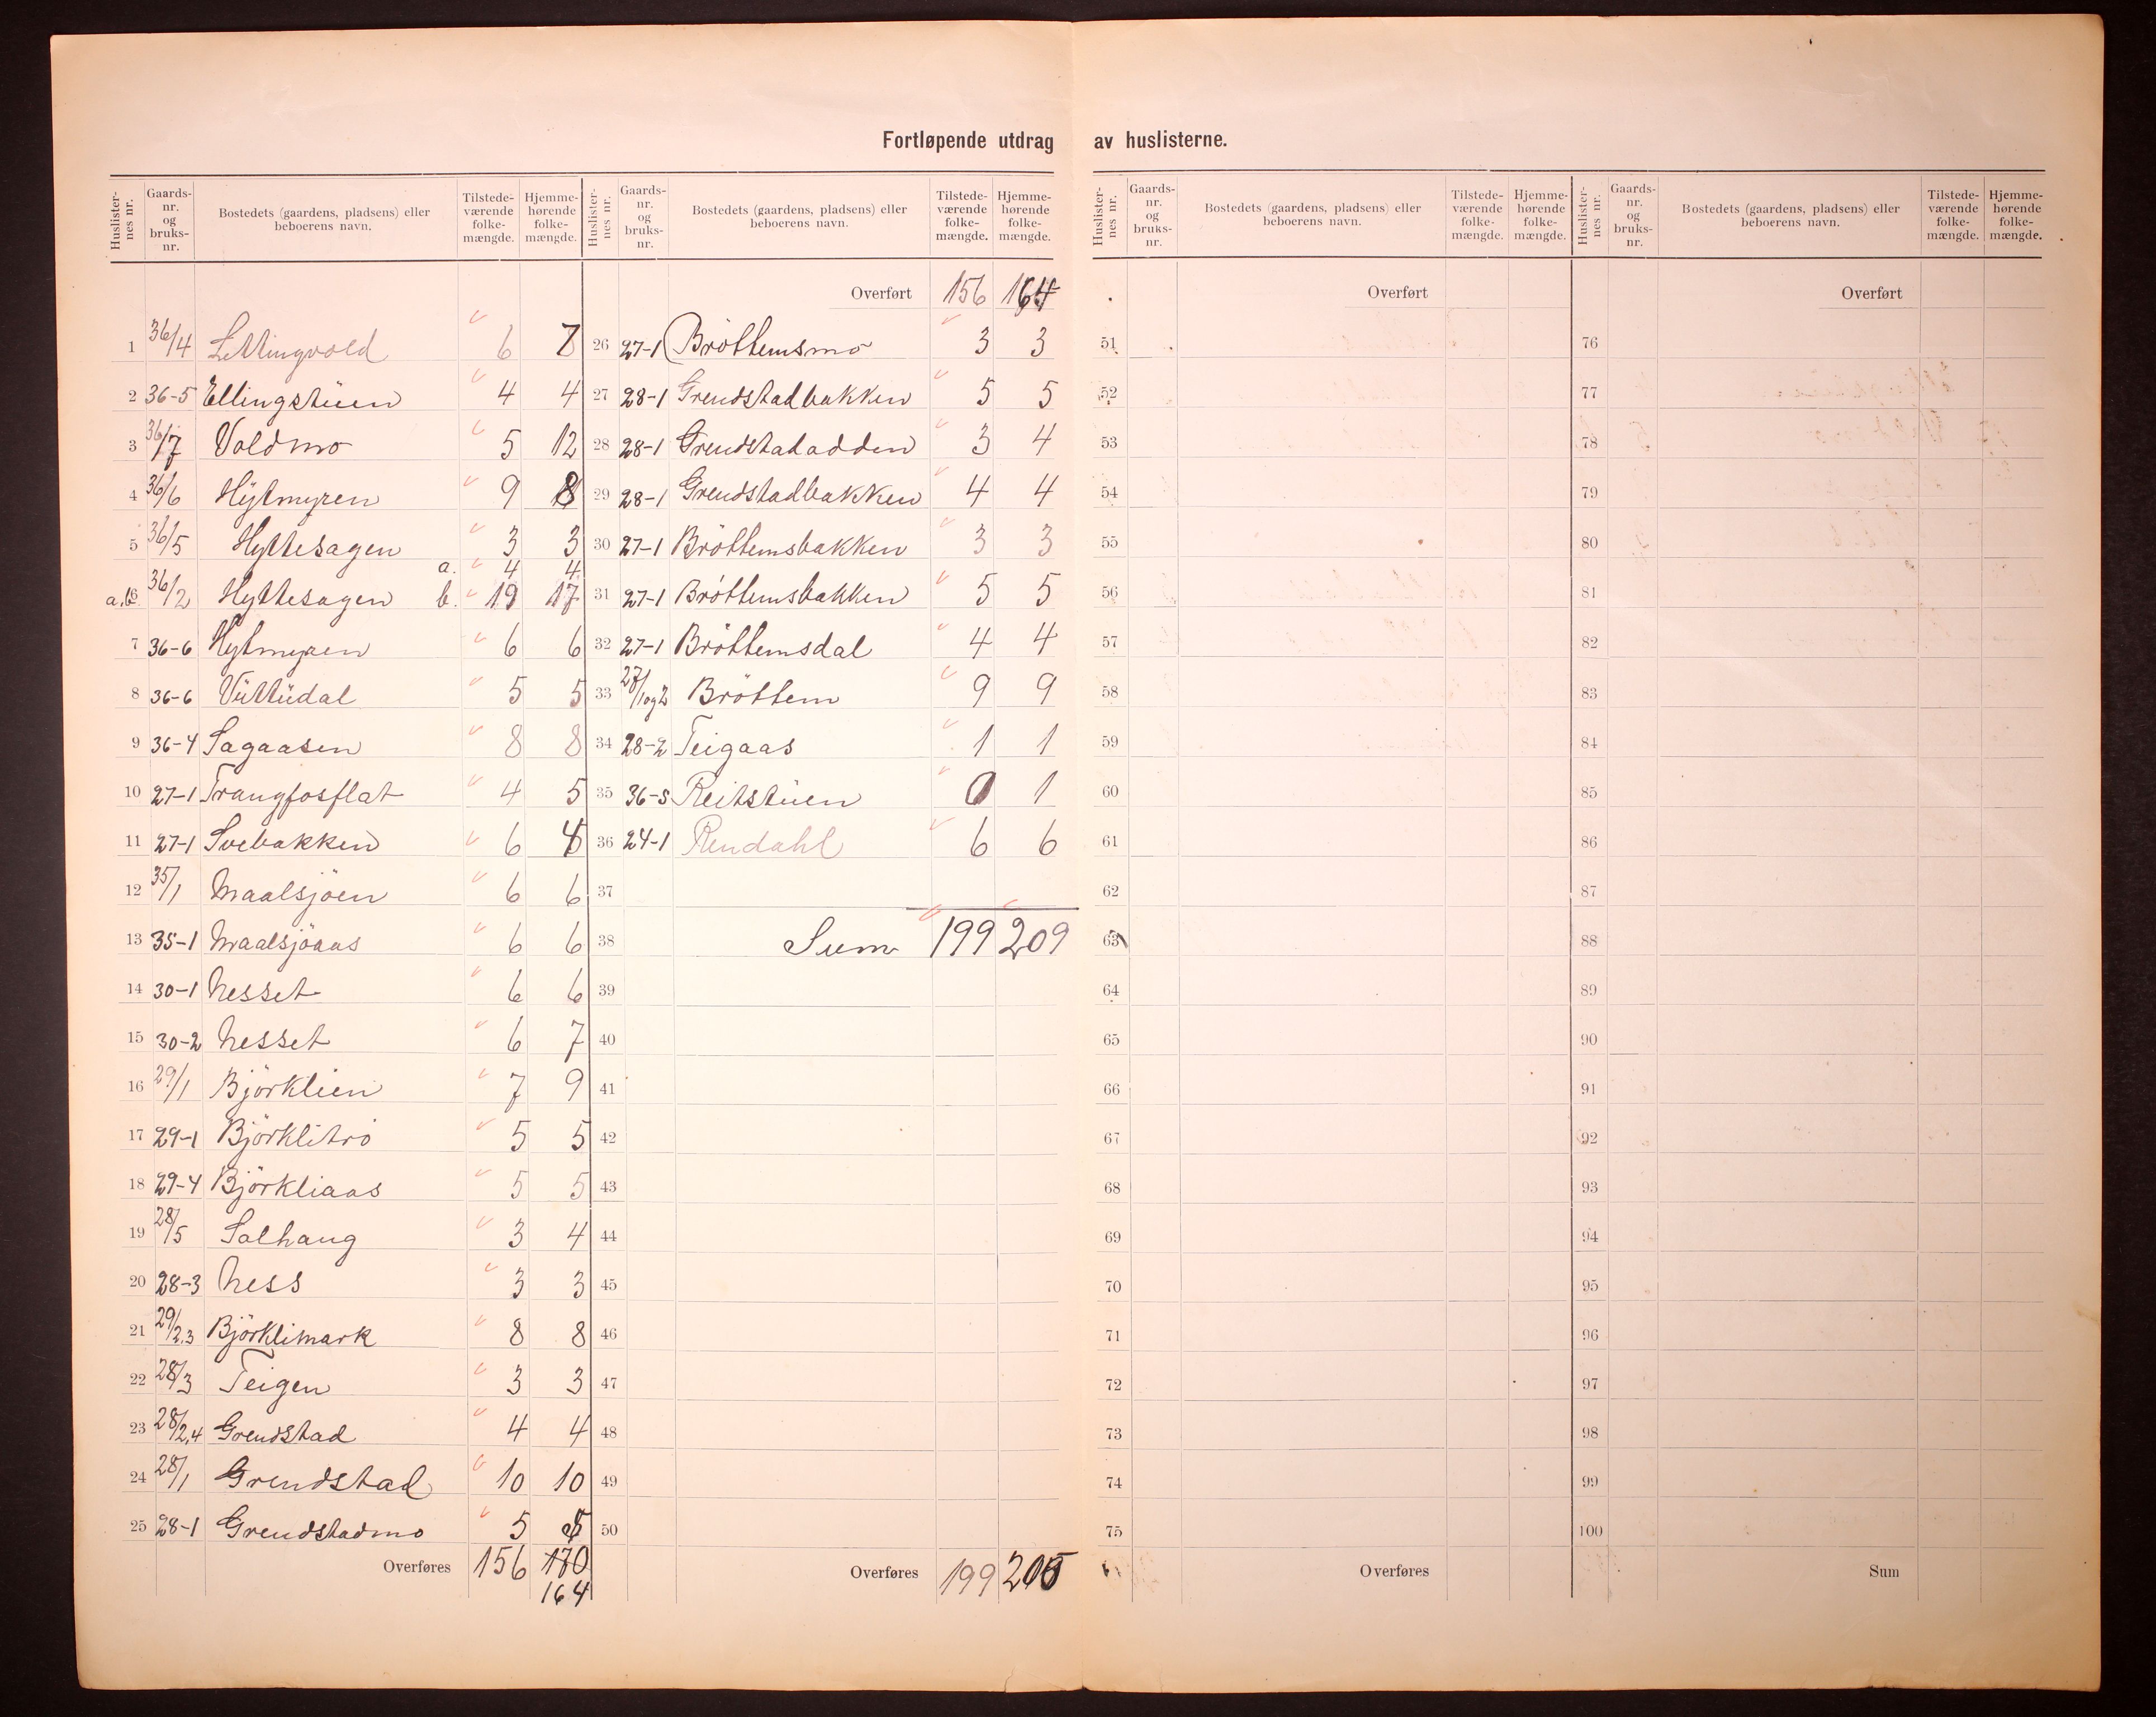 Fortløpende utdrag av huslisterne.
Huslisternes nr. Gaardsnr. og bruksnr. Bostedets (gaardens, pladsens) eller beboerens navn. Tilstedeværende folkemængde. Hjemmehørende folkemængde.
1 36/4 Lettingvold 6 7
2 36-5 Ellingstuen 4 4
3 36/7 Voldmo 5 12
4 36/6 Hytmyren 9 8
5 36/5 Hyttesagen 3 3
a. 4 4
a,b 6 36/2 Hyttesagen b. 19 17
7 36-6 Hytmyren 6 6
8 36-6 Vuttudal 5 5
9 36-4 Sagaasen 8 8
10 27-1 Trangfosflat 4 5
11 27-1 Svebakken 6
12 35/1 Maalsjöen 6 6
13 35-1 Maalsjöaas 6 6
14 30-1 Nesset 6 6
15 30-2 Nesset 6 7
16 29/1 Björklien 7 9
17 29-1 Björklitrö 5 5
18 29-4 Björkliaas 5 5
19 28/5 Solhaug 3 4
20 28-3 Ness 3 3
21 29/2,3 Björklimark 8 8
22 28/3 Teigen 3 3
23 28/2,4 Grendstad 4 4
24 28/1 Grendstad 10 10
25 28-1 Grendstadmo 5 5
Overføres 156 170
164
Huslisternes nr. Gaardsnr. og bruksnr. Bostedets (gaardens, pladsens) eller beboerens navn. Tilstedeværende folkemængde. Hjemmehørende folkemængde.
Overført 156 164
26 27-1 Bröttemsmo 3 3
27 28-1 Grendstadbakken 5 5
28 28-1 Grendstadodden 3 4
29 28-1 Grendstadbakken 4 4
30 27-1 Bröttemsbakken 3 3
31 27-1 Bröttemsbakken 5 5
32 27-1 Bröttemsdal 4 4
33 27/1og2 Bröttem 9 9
34 28-2 Teigaas 1 1
35 36-5 Reitstuen 0 1
36 24-1 Rendahl 6 6
37
38 Sum 199 209
39
40
41
42
43
44
45
46
47
48
49
50
Overføres 199
Huslisternes nr. Gaardsnr. og bruksnr. Bostedets (gaardens, pladsens) eller beboerens navn. Tilstedeværende folkemængde. Hjemmehørende folkemængde.
Overført
51
52
53
54
55
56
57
58
59
60
61
62
63
64
65
66
67
68
69
70
71
72
73
74
75
Overføres
Huslisternes nr. Gaardsnr. og bruksnr. Bostedets (gaardens, pladsens) eller beboerens navn. Tilstedeværende folkemængde. Hjemmehørende folkemængde.
Overført
76
77
78
79
80
81
82
83
84
85
86
87
88
89
90
91
92
93
94
95
96
97
98
99
100
Sum